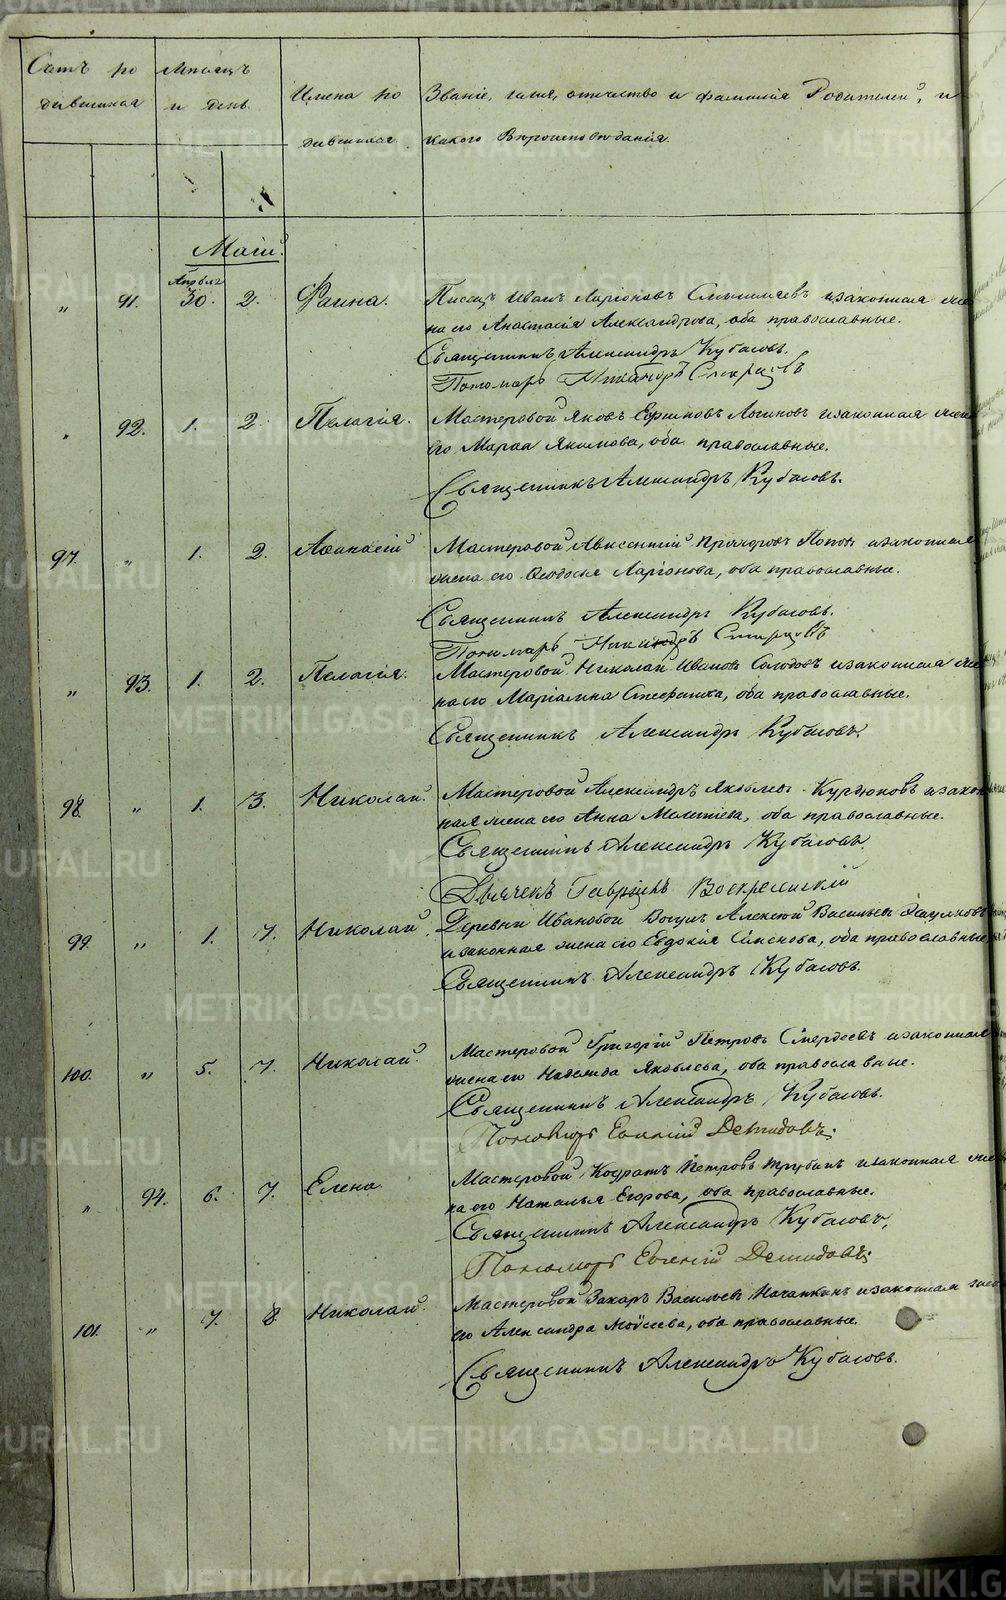 Счетъ ро Мѣсяцъ
дившихся и день. Имена ро Званіе, имя, отчество и фамилія Родителей, и
дившихся. какого Вѣроисповѣданія.
Маій.
Апрѣля
„ 91. 30. 2. Фаина. Писецъ Иванъ Ларіоновъ изаконная же
на его Анастасія Александрова, оба православные.
Священникъ Александръ Кубасовъ.
Пономарь Никаноръ
„ 92. 1. 2. Пелагія. Мастеровой Яковъ Логиновъ изаконная жена
его Марѳа Якимова, оба православные.
Священникъ Александръ Кубасовъ.
97. „ 1. 2. Аѳанасій Мастеровой Авксентій Прохоровъ Поповъ изаконная
жена его Ѳеодосья Ларіонова, оба православные.
Священникъ Александръ Кубасовъ.
Пономарь
„ 93. 1. 2. Пелагія. Мастеровой Николай Ивановъ Солодовъ изаконная же
на его Маріамна оба православные.
Священникъ Александръ Кубасовъ.
98. „ 1. 3. Николай. Мастеровой Александръ Яковлевъ Курдюковъ изакон
ная жена его Анна оба православные.
Священникъ Александръ Кубасовъ.
Дьячекъ Гавріилъ Воскресенскій
99. „ 1. 7. Николай. Деревни Ивановой Вогулъ Алексѣй Васильевъ
изаконная жена его Евдокія Сѵменова, оба православные
Священникъ Александръ Кубасовъ.
100. „ 5. 7. Николай. Мастеровой Григорій Петровъ Смердевъ изаконная
жена его Надежда Яковлева, оба православные.
Священникъ Александръ Кубасовъ.
Пономарь Евгеній Демидовъ.
„ 94. 6. 7. Елена. Мастеровой Кодратъ Петровъ Трубинъ изаконная же
на его Наталья Егорова, оба православные.
Священникъ Александръ Кубасовъ.
Пономарь Евгеній Демидовъ.
101. „ 7. 8. Николай. Мастеровой Захаръ Васильевъ изаконная жена
его Александра Моѵсеева, оба православные.
Священникъ Александръ Кубасовъ.
METRIKI.GASO-URAL.RU